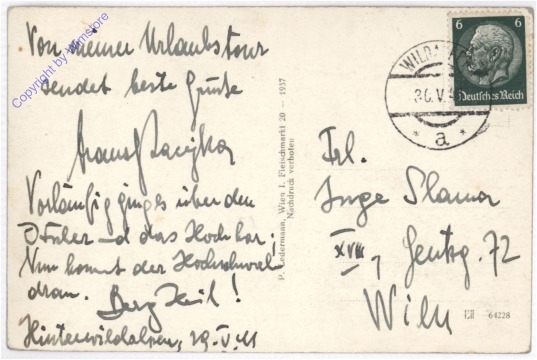 Von meiner Urlaubstour
sendet beste Grüße
Vorläufig ging es über den
und das Hochkar;
Nun kommt der Hochschwab
dran. Berg Heil!
Hinterwildalpen, 29.V.41
Copyright by Wimstore
P. Ledermann, Wien I, Fleischmarkt 20 — 1937
Nachdruck verboten
6 6
Deutsches Reich
WILDA
30.V.
* a *
Frl.
Inge Slamar
XVIII, Gentzg. 72
Wien
64228